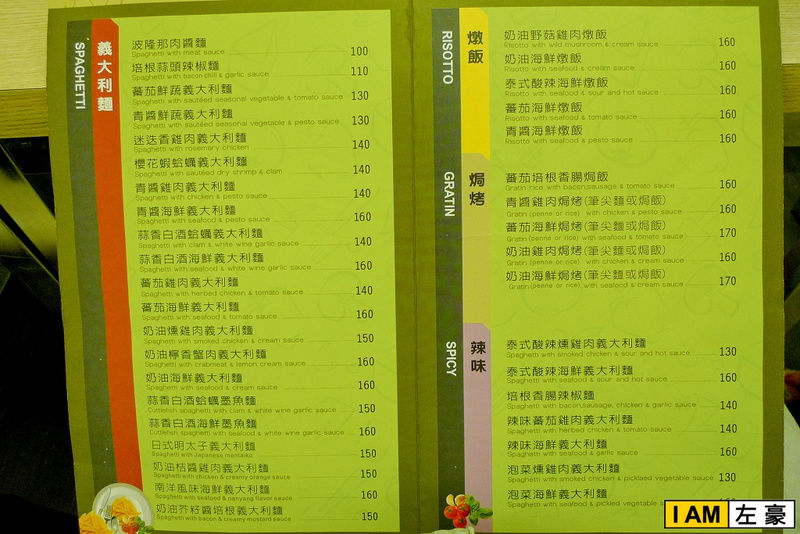 義大利麵
SPAGHETTI
波隆那肉醬麵
Spaghetti with meat sauce 100
培根蒜頭辣椒麵
Spaghetti with bacon chili & garlic sauce 110
蕃茄鮮蔬義大利麵
Spaghetti with sautéed seasonal vegetable & tomato sauce 130
青醬鮮蔬義大利麵
Spaghetti with sautéed seasonal vegetable & pesto sauce 130
迷迭香雞肉義大利麵
Spaghetti with rosemary chicken 140
櫻花蝦蛤蠣義大利麵
Spaghetti with sautéed dry shrimp & clam 140
青醬雞肉義大利麵
Spaghetti with chicken & pesto sauce 140
青醬海鮮義大利麵
Spaghetti with seafood & pesto sauce 160
蒜香白酒蛤蠣義大利麵
Spaghetti with clam & white wine garlic sauce 140
蒜香白酒海鮮義大利麵
Spaghetti with seafood & white wine garlic sauce 160
蕃茄雞肉義大利麵
Spaghetti with herbed chicken & tomato sauce 140
蕃茄海鮮義大利麵
Spaghetti with seafood & tomato sauce 160
奶油燻雞肉義大利麵
Spaghetti with smoked chicken & cream sauce 150
奶油檸香蟹肉義大利麵
Spaghetti with crabmeat & lemon cream sauce 160
奶油海鮮義大利麵
Spaghetti with seafood & cream sauce 160
蒜香白酒蛤蠣墨魚麵
Cuttlefish spaghetti with clam & white wine garlic sauce 150
蒜香白酒海鮮墨魚麵
Cuttlefish spaghetti with seafood & white wine garlic sauce 160
日式明太子義大利麵
Spaghetti with Japanese mentaiko 150
奶油桔醬雞肉義大利麵
Spaghetti with chicken & creamy orange sauce 150
南洋風味海鮮義大利麵
Spaghetti with seafood & nanyang flavor sauce 160
奶油芥籽醬培根義大利麵
Spaghetti with bacon & creamy mustard sauce 150
燉飯
RISOTTO
奶油野菇雞肉燉飯
Risotto with wild mushroom & cream sauce 160
奶油海鮮燉飯
Risotto with seafood & cream sauce 160
泰式酸辣海鮮燉飯
Risotto with seafood & sour and hot sauce 160
蕃茄海鮮燉飯
Risotto with seafood & tomato sauce 160
青醬海鮮燉飯
Risotto with seafood & pesto sauce 160
焗烤
GRATIN
蕃茄培根香腸焗飯
Gratin rice with bacon,sausage & tomato sauce 160
青醬雞肉焗烤(筆尖麵或焗飯)
Gratin (penne or rice) with chicken & pesto sauce 160
蕃茄海鮮焗烤(筆尖麵或焗飯)
Gratin (penne or rice) with seafood & tomato sauce 170
奶油雞肉焗烤(筆尖麵或焗飯)
Gratin (penne or rice) with chicken & cream sauce 160
奶油海鮮焗烤(筆尖麵或焗飯)
Gratin (penne or rice) with seafood & cream sauce 170
辣味
SPICY
泰式酸辣燻雞肉義大利麵
Spaghetti with smoked chicken & sour and hot sauce 130
泰式酸辣海鮮義大利麵
Spaghetti with seafood & sour and hot sauce 160
培根香腸辣椒麵
Spaghetti with bacon,sausage, chicken & garlic sauce 140
辣味蕃茄雞肉義大利麵
Spaghetti with herbed chicken & tomato sauce 140
辣味海鮮義大利麵
Spaghetti with seafood & garlic sauce 160
泡菜燻雞肉義大利麵
Spaghetti with smoked chicken & picklaed vegetable sauce 130
泡菜海鮮義大利麵
Spaghetti with seafood & picklaed vegetable
I AM 左豪